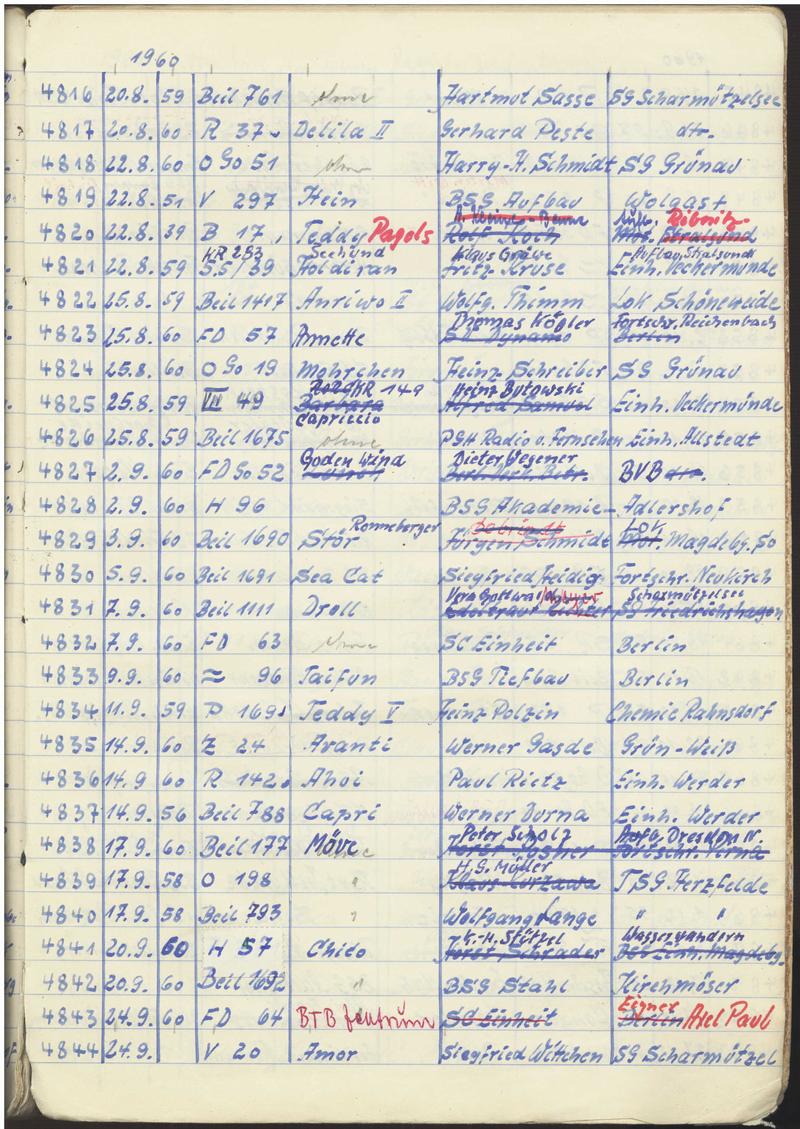 1960
4816 20.8. 59 Beil 761 ohne Hartmut Sasse SG Scharmützelsee
4817 20.8. 60 R 37 Delila II Gerhard Peste dtr.
4818 22.8. 60 O Go 51 ohne Harry-H. Schmidt SG Grünau
4819 22.8. 51 V 297 Hein BSG Aufbau Wolgast
Ribnitz
4820 22.8. 39 B 17 Teddy Pagels Rolf Koch Mot. Stralsund
KR 283 Seehund Klaus Gräwe Aufbau, Stralsund
4821 22.8. 59 S.S/39 Fritz Kruse Einh. Ueckermünde
4822 25.8. 59 Beil 1417 Anriwo II Wolfg. Thimm Lok Schöneweide
Thomas Kögler Fortschr. Reichenbach
4823 25.8. 60 FD 57 Annette SC Dynamo Berlin
4824 25.8. 60 O Go 19 Mohrchen Heinz Schreiber SG Grünau
KR 149 Heinz Butowski
4825 25.8. 59 III 49 Barbara Alfred Samuel Einh. Ueckermünde
Capriccio
4826 25.8. 59 Beil 1675 ohne PGH Radio u. Fernsehen Einh. Allstedt
Goden Wind Dieter Wegener
4827 2.9. 60 FD Go 52 BVB dtr.
4828 2.9. 60 H 96 BSG Akademie- Adlershof
Ronneberger Lok
4829 3.9. 60 Beil 1690 Stör Jürgen Schmidt Mot. Magdebg. So
4830 5.9. 60 Beil 1691 Sea Cat Siegfried Heidig Fortschr. Neukirch
Vera Gottwald Scharmützelsee
4831 7.9. 60 Beil 1111 Droll Edeltraut SG Friedrichshagen
4832 7.9. 60 FD 63 ohne SC Einheit Berlin
4833 9.9. 60 ≈ 96 Taifun BSG Tiefbau Berlin
4834 11.9. 59 P 169 Teddy V Heinz Polzin Chemie Rahnsdorf
4835 14.9. 60 Z 24 Avanti Werner Gasde Grün-Weiß
4836 14.9. 60 R 142 Ahoi Paul Rietz Einh. Werder
4837 14.9. 56 Beil 788 Capri Werner Durna Einh. Werder
Peter Scholz Aufb. Dresden N.
4838 17.9. 60 Beil 177 Möve Horst Fortschr. Pirna
H.G. Müller
4839 17.9. 58 O 198 " Klaus Kurzawa TSG Herzfelde
4840 17.9. 58 Beil 793 " Wolfgang Lange " "
K.-H. Stützel Wasserwandern
4841 20.9. 60 H 57 Chico Horst Schrader BSG Einh. Magdebg.
4842 20.9. 60 Beil 1692 BSG Stahl Kirchmöser
Eigner
4843 24.9. 60 FD 64 BTB Zentrum SC Einheit Berlin Axel Paul
4844 24.9. V 20 Amor Siegfried Wittchen SG Scharmützel